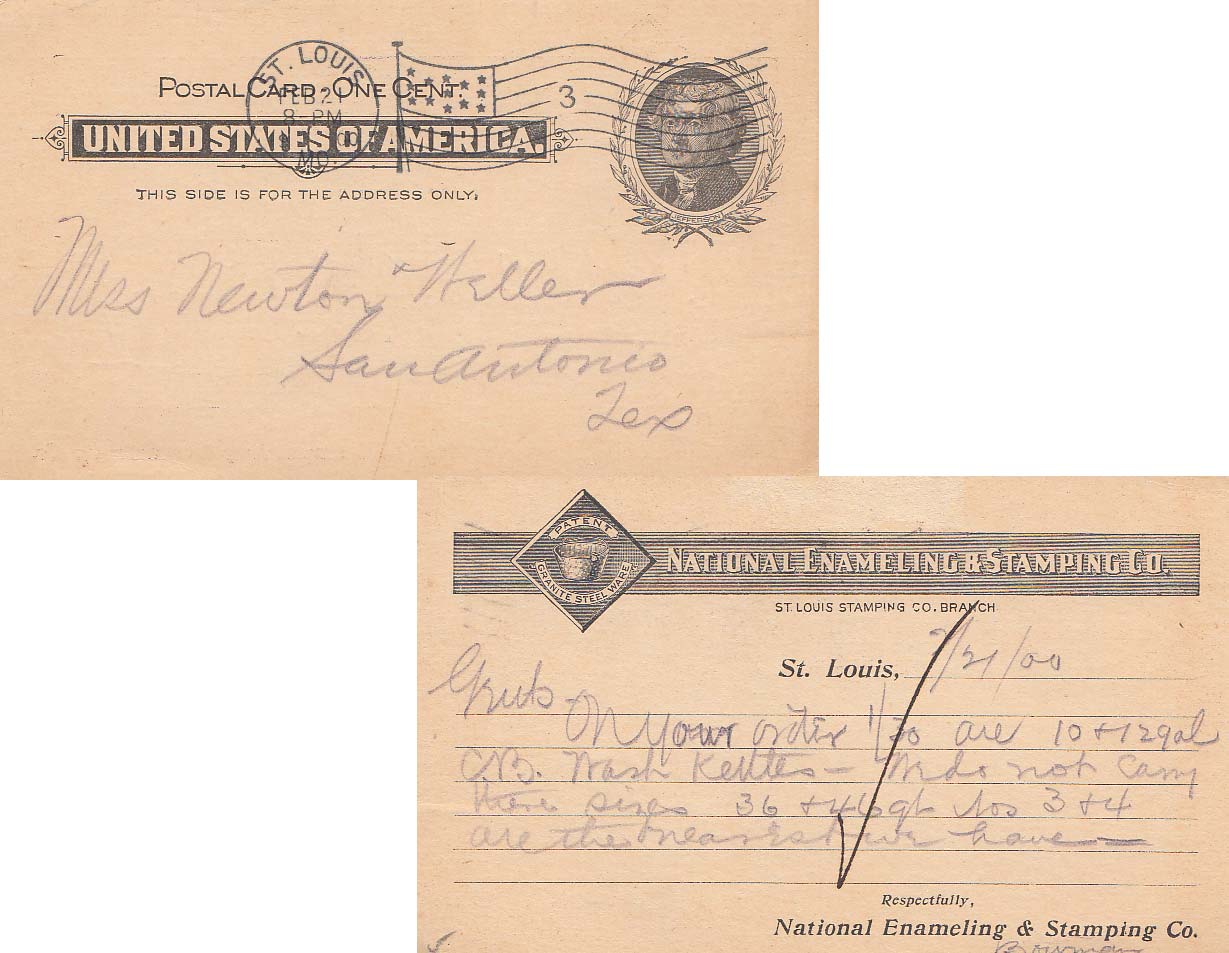 ST. LOUIS
FEB 21
8-PM
00
MO.
3
POSTAL CARD - ONE CENT.
UNITED STATES OF AMERICA.
THIS SIDE IS FOR THE ADDRESS ONLY.
JEFFERSON
Mess Newton & Weller
San Antonio
Tex
PATENT
GRANITE STEEL WARE
NATIONAL ENAMELING & STAMPING CO.
ST. LOUIS STAMPING CO. BRANCH
St. Louis, 2/21/00
Gents
On your order 1/30 are 10 + 12 gal
C.B. Wash Kettles — We do not carry
these sizes 36 + 46 qt Nos 3 + 4
are the nearest we have —
Respectfully,
National Enameling & Stamping Co.
Bowman